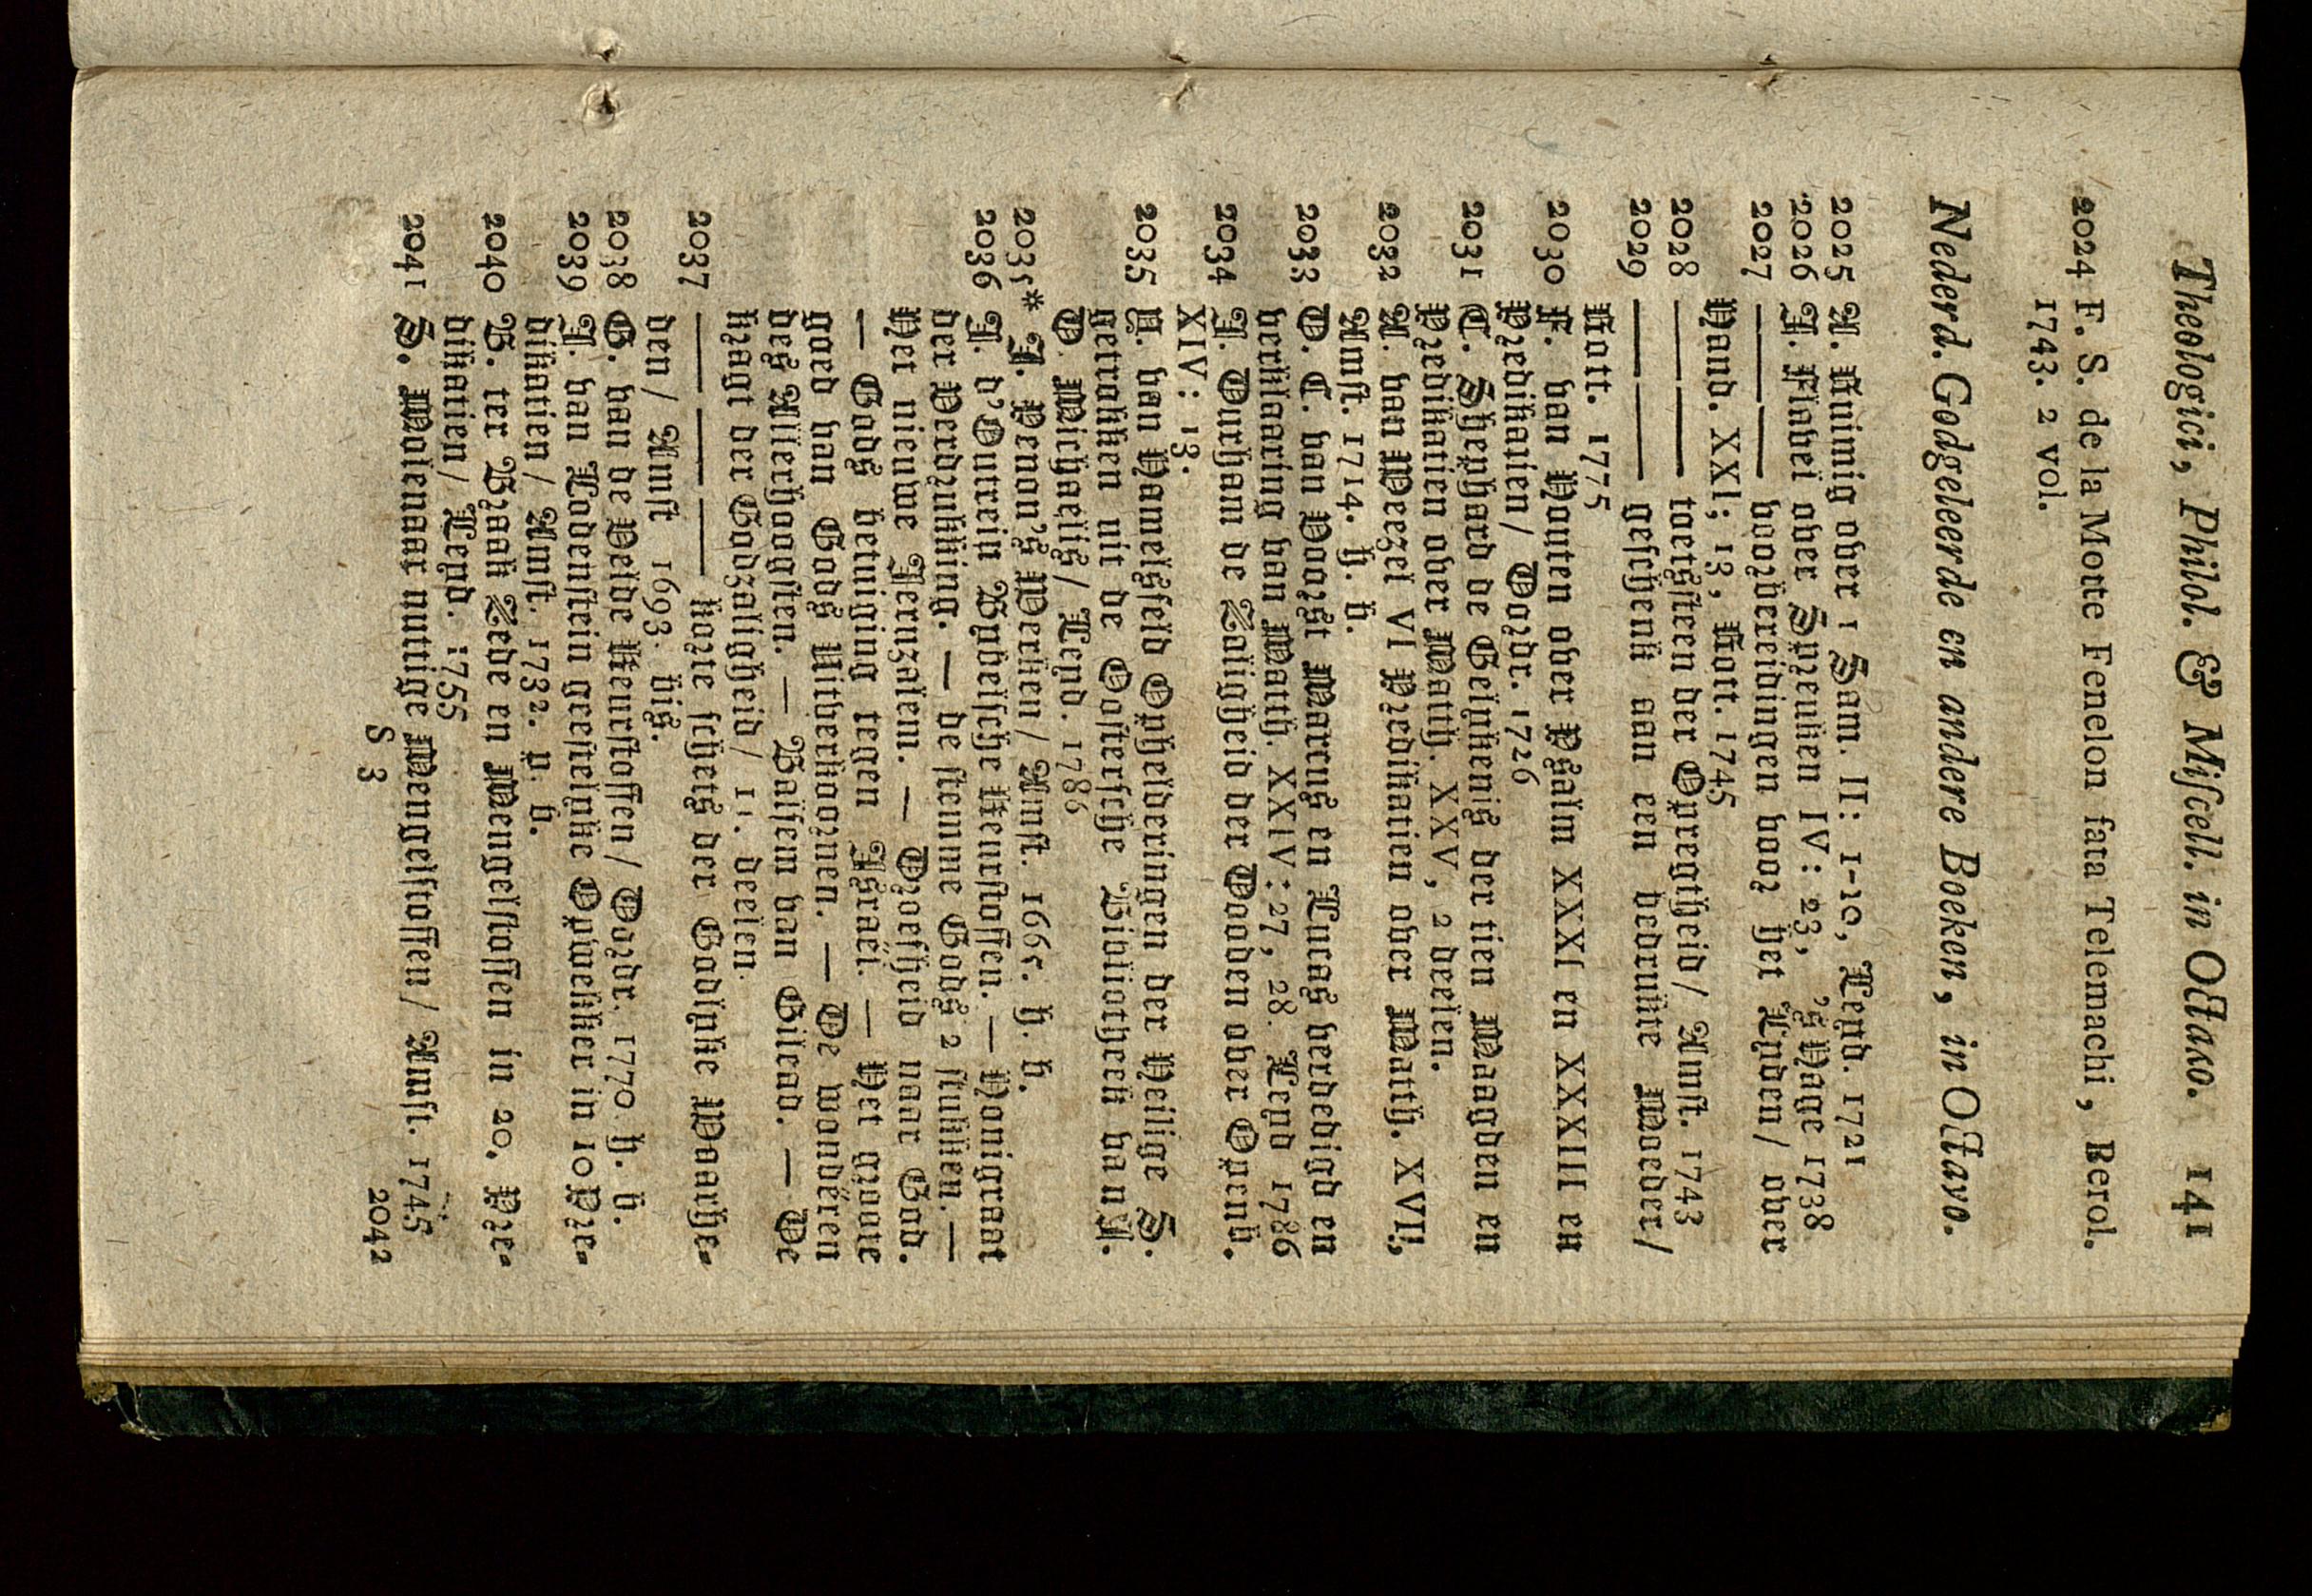 Theologici, Philol. & Miſcell. in Octavo. 141
2024 F. S. de la Motte Fenelon fata Telemachi, Berol.
1743. 2 vol.
Nederd. Godgeleerde en andere Boeken, in Octavo.
2025 A. Kuimig over 1 Sam. II: 1-10, Leyd. 1721
2026 J. Flavel over Spreuken IV: 23, 's Hage 1738
2027 ———— voorbereidingen voor het Lyden / over
Hand. XXI; 13, Rott. 1745
2028 ———— toetsſteen der Opregtheid / Amſt. 1743
2029 ———— geſchenk aan een bedrukte Moeder /
Rott. 1775
2030 F. van Houten over Pſalm XXXI en XXXIII en
Predikatien / Dordr. 1726
2031 T. Shephard de Gelykenis der tien Maagden en
Predikatien over Matth. XXV, 2 deelen.
2032 A. van Weezel VI Predikatien over Matth. XVII,
Amſt. 1714. h. b.
2033 D. C. van Voorst Marcus en Lucas verdedigd en
verklaaring van Matth. XXIV: 27, 28. Leyd 1786
2034 J. Durham de Zaligheid der Dooden over Openb.
XIV: 13.
2035 Y. van Hamelsfeld Ophelderingen der Heilige S.
getrokken uit de Ooſterſche Bibliotheek van J.
D. Michaelis / Leyd. 1786
2035* J. Penon's Werken / Amſt. 1665. h. b.
2036 J. d'Outrein Bybelſche Keurſtoffen. — Honigraat
der Verdrukking. — de ſtemme Gods 2 ſtukken. —
Het nieuwe Jeruzalem. — Droefheid naar God.
— Gods betuiging tegen Israël. — Het groote
goed van Gods Uitverkoornen. — De wonderen
des Allerhoogſten. — Balſem van Gilead. — De
kragt der Godzaligheid / 11. deelen.
2037 —————— korte ſchets der Godlyke Waarhe-
den / Amſt 1693. bis.
2038 G. van de Velde Keurſtoffen / Dordr. 1770. h. b.
2039 J. van Lodenſtein geeſtelyke Opwekker in 10 Pre-
dikatien / Amſt. 1732. p. b.
2040 B. ter Braak Rede en Mengelſtoffen in 20, Pre-
dikatien / Leyd. 1755
2041 S. Molenaar nuttige Mengelſtoffen / Amſt. 1745
S 3 2042